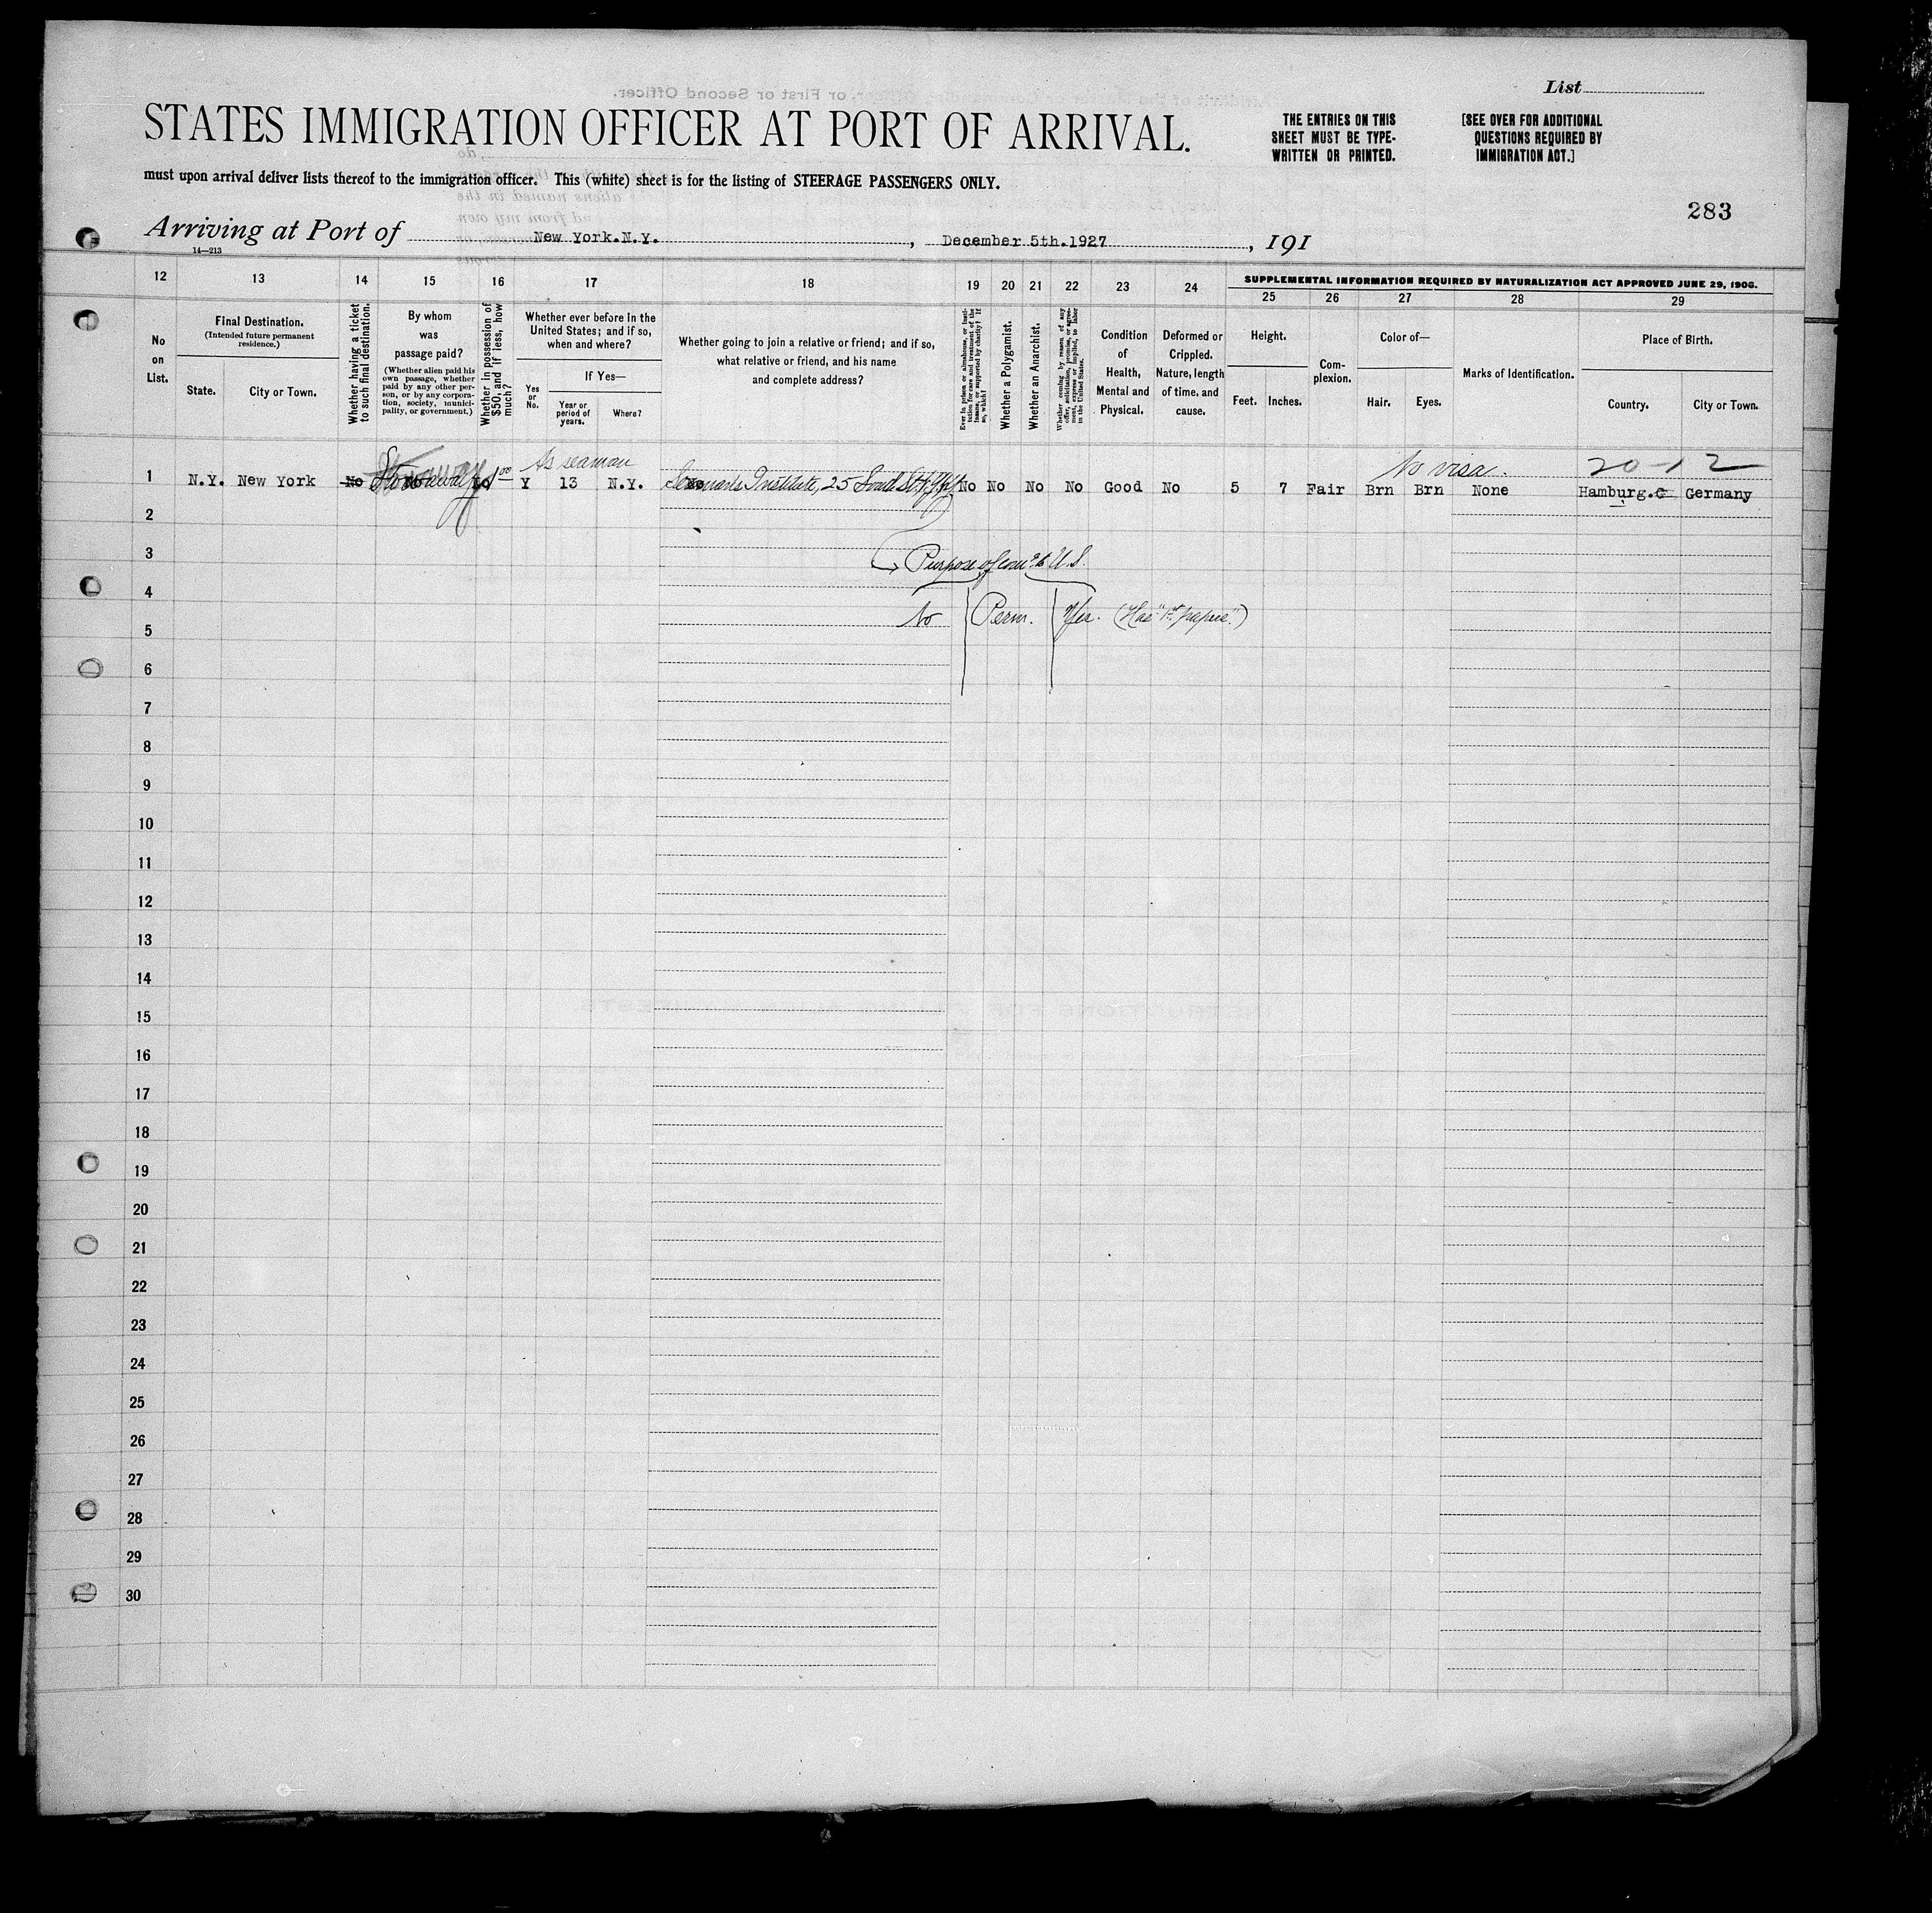 List
STATES IMMIGRATION OFFICER AT PORT OF ARRIVAL.
THE ENTRIES ON THIS
SHEET MUST BE TYPE-
WRITTEN OR PRINTED.
[SEE OVER FOR ADDITIONAL
QUESTIONS REQUIRED BY
IMMIGRATION ACT.]
must upon arrival deliver lists thereof to the immigration officer. This (white) sheet is for the listing of STEERAGE PASSENGERS ONLY.
283
Arriving at Port of New York.N.Y. , December 5th.1927 , 191
14—213
12 13 14 15 16 17 18 19 20 21 22 23 24
SUPPLEMENTAL INFORMATION REQUIRED BY NATURALIZATION ACT APPROVED JUNE 29, 1906.
25 26 27 28 29
No
on
List.
Final Destination.
(Intended future permanent
residence.)
State.
City or Town.
Whether having a ticket
to such final destination.
By whom
was
passage paid?
(Whether alien paid his
own passage, whether
paid by any other per-
son, or by any corpora-
tion, society, munici-
pality, or government.)
Whether in possession of
$50, and if less, how
much?
Whether ever before in the
United States; and if so,
when and where?
Yes
or
No.
If Yes—
Year or
period of
years.
Where?
Whether going to join a relative or friend; and if so,
what relative or friend, and his name
and complete address?
Ever in prison or almshouse, or insti-
tution for care and treatment of the
insane, or supported by charity? If
so, which?
Whether a Polygamist.
Whether an Anarchist.
Whether coming by reason of any
offer, solicitation, promise, or agree-
ment, express or implied, to labor
in the United States.
Condition
of
Health,
Mental and
Physical.
Deformed or
Crippled.
Nature, length
of time, and
cause.
Height.
Feet.
Inches.
Com-
plexion.
Color of—
Hair.
Eyes.
Marks of Identification.
Place of Birth.
Country.
City or Town.
As seaman No visa. 20-12
1 N.Y. New York No Stowaway 1 00 Y 13 N.Y. Seaman's Institute, 25 South St. No No No No Good No 5 7 Fair Brn Brn None Hamburg. Germany
2
3
Purpose of com'g to U.S.
4
No Perm. Yes. (Has "1st papers")
5
6
7
8
9
10
11
12
13
14
15
16
17
18
19
20
21
22
23
24
25
26
27
28
29
30